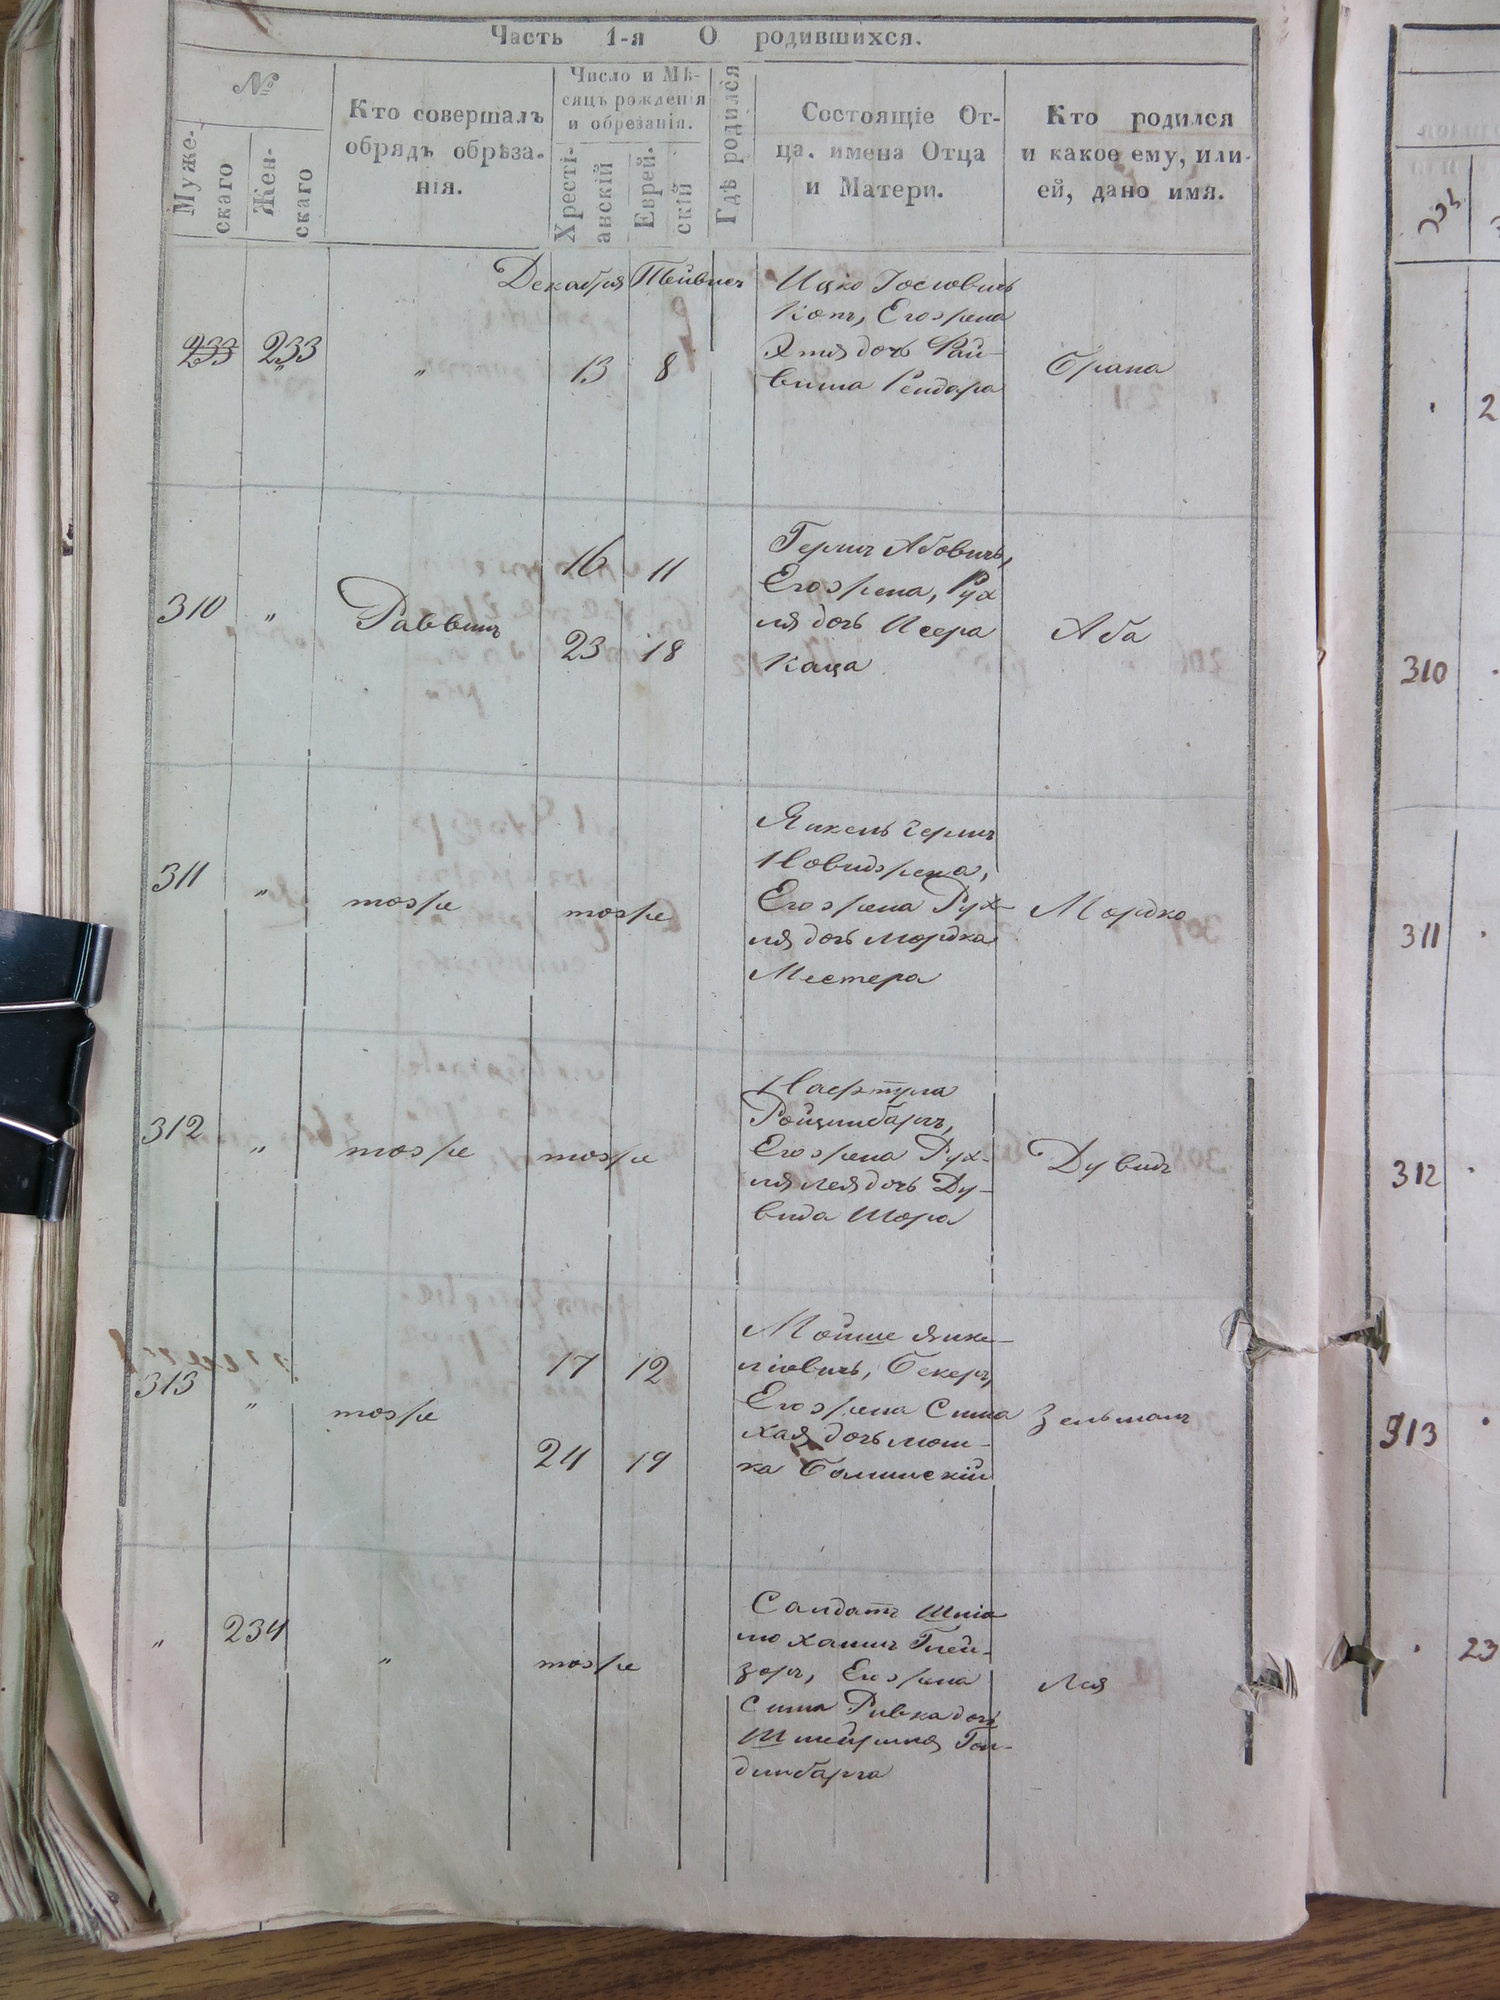 Часть 1-я О родившихся.
№
Муже-
скаго
Жен-
скаго
Кто совершалъ
обрядъ обрѣза-
нія.
Число и Мѣ-
сяцъ рожденія
и обрезанія.
Хресті-
анскій
Еврей-
скій
Гдѣ родился
Состоящіе От-
ца. имена Отца
и Матери.
Кто родился
и какое ему, или-
ей, дано имя.
Декабря Тейвисъ
233 233 „ 13 8
Ицко Іосіовичъ
Котъ, Его жена
дочь
Рендара
Брана
310 „ Раввинъ
16 11
23 18
Гершъ Абовичъ,
Его жена, Рух
ля дочь Исера
Каца
Аба
311 „ тоже тоже
Янкель Гершъ
Его жена Рух-
ля дочь Мордка
Местера
Мордко
312 „ тоже тоже
Нафтула
Ройцинбаргъ,
Его жена Рух-
ля лея дочь Ду-
вида Шора
Дувидъ
313 „ тоже
17 12
24 19
Мойше Янке-
ліовичъ, Бекеръ,
Его жена Сима
хая дочь Мош-
ка
Зельманъ
„ 234 „ тоже
Салдатъ Шліо
мо Хаимъ Глей-
зоръ, Его жена
Сима Ривка дочь
Гол-
динбарга
Лея
310
311
312
313
23